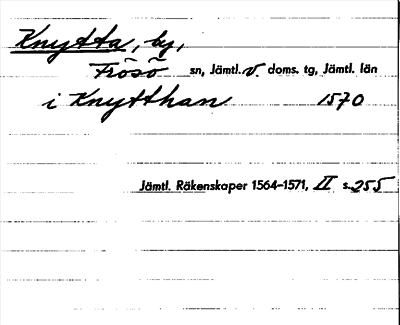 Knytta, by,
Frösö sn, Jämtl. v. doms. tg, Jämtl. län
i Knytthan 1570
Jämtl. Räkenskaper 1564–1571, II s. 255